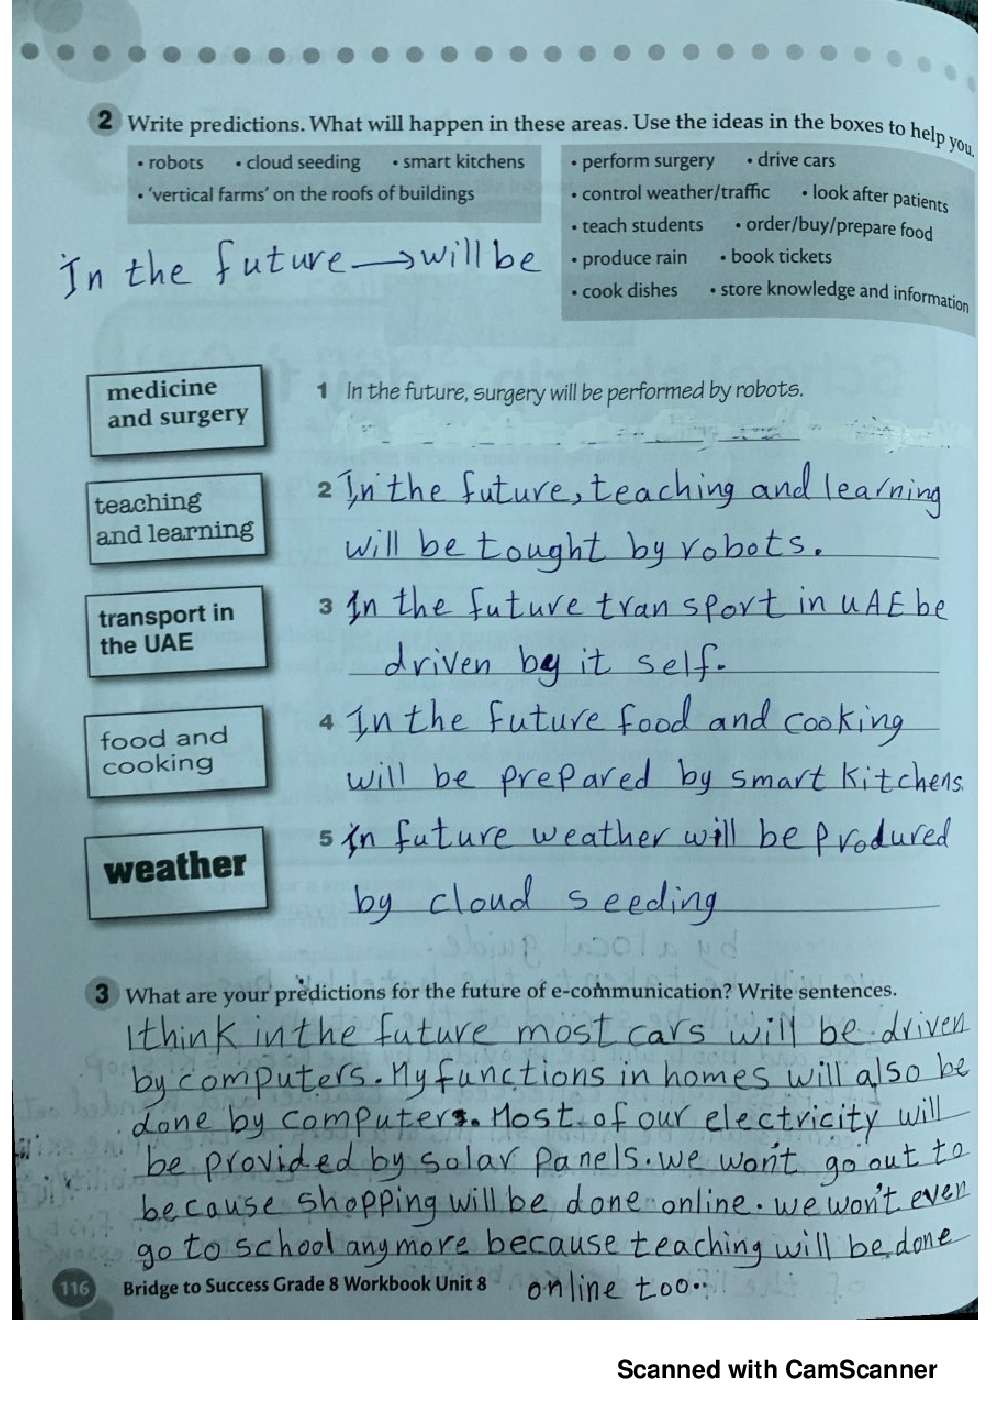 2 Write predictions. What will happen in these areas. Use the ideas in the boxes to help you.
• robots • cloud seeding • smart kitchens
• 'vertical farms' on the roofs of buildings
• perform surgery • drive cars
• control weather/traffic • look after patients
• teach students • order/buy/prepare food
• produce rain • book tickets
• cook dishes • store knowledge and information
In the future → will be
medicine
and surgery
1 In the future, surgery will be performed by robots.
teaching
and learning
2 In the future, teaching and learning
will be tought by robots.
transport in
the UAE
3 In the future transport in UAE be
driven by it self.
food and
cooking
4 In the future food and cooking
will be prepared by smart kitchens
weather
5 in future weather will be produred
by cloud seeding
3 What are your predictions for the future of e-communication? Write sentences.
I think in the future most cars will be driven
by computers. My functions in homes will also be
done by computers. Most of our electricity will
be provided by solar panels. we won't go out to
because shopping will be done online. we won't even
go to school anymore because teaching will be done
116 Bridge to Success Grade 8 Workbook Unit 8 online too..
Scanned with CamScanner